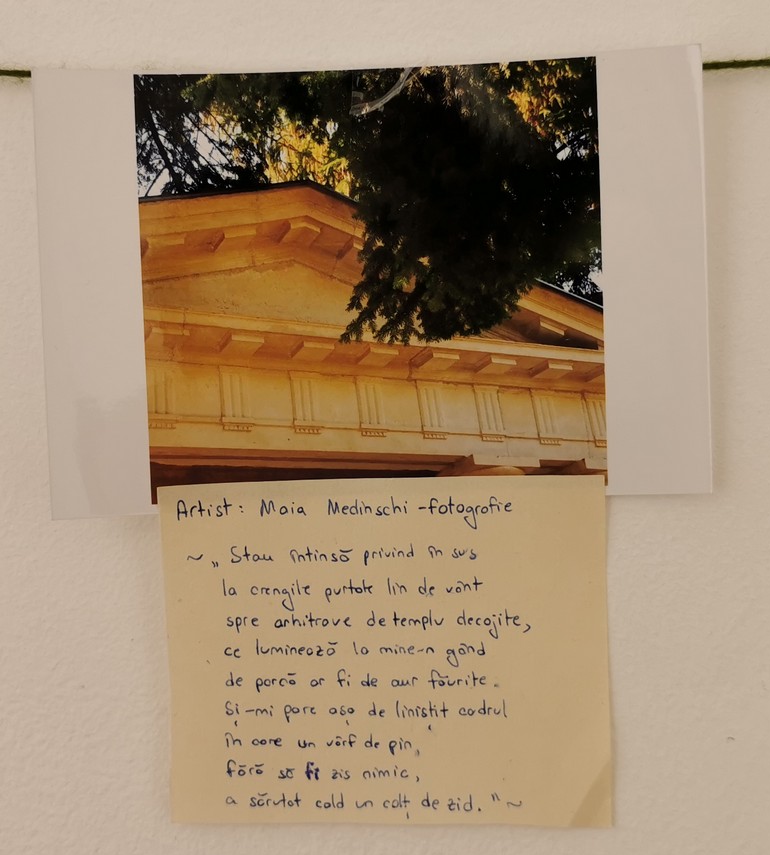 Artist: Maia Medinschi - fotografie
~ „Stau întinsă privind în sus
la crengile purtate lin de vânt
spre arhitrave de templu decojite,
ce luminează la mine-n gând
de parcă ar fi de aur făurite.
Și-mi pare așa de liniștit cadrul
în care un vârf de pin,
fără să fi zis nimic,
a sărutat cald un colț de zid." ~